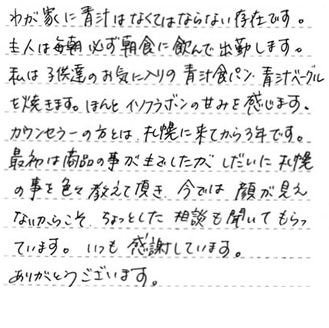 わが家に青汁はなくてはならない存在です。
主人は毎朝必ず朝食に飲んで出勤します。
私は子供達のお気に入りの青汁食パン、青汁ベーグル
を焼きます。ほんとイソフラボンの甘みを感じます。
カウンセラーの方とは、札幌に来てから3年です。
最初は商品の事が主でしたが、しだいに札幌
の事を色々教えて頂き、今では顔が見え
ないからこそ、ちょっとした相談も聞いてもらっ
ています。いつも感謝しています。
ありがとうございます。